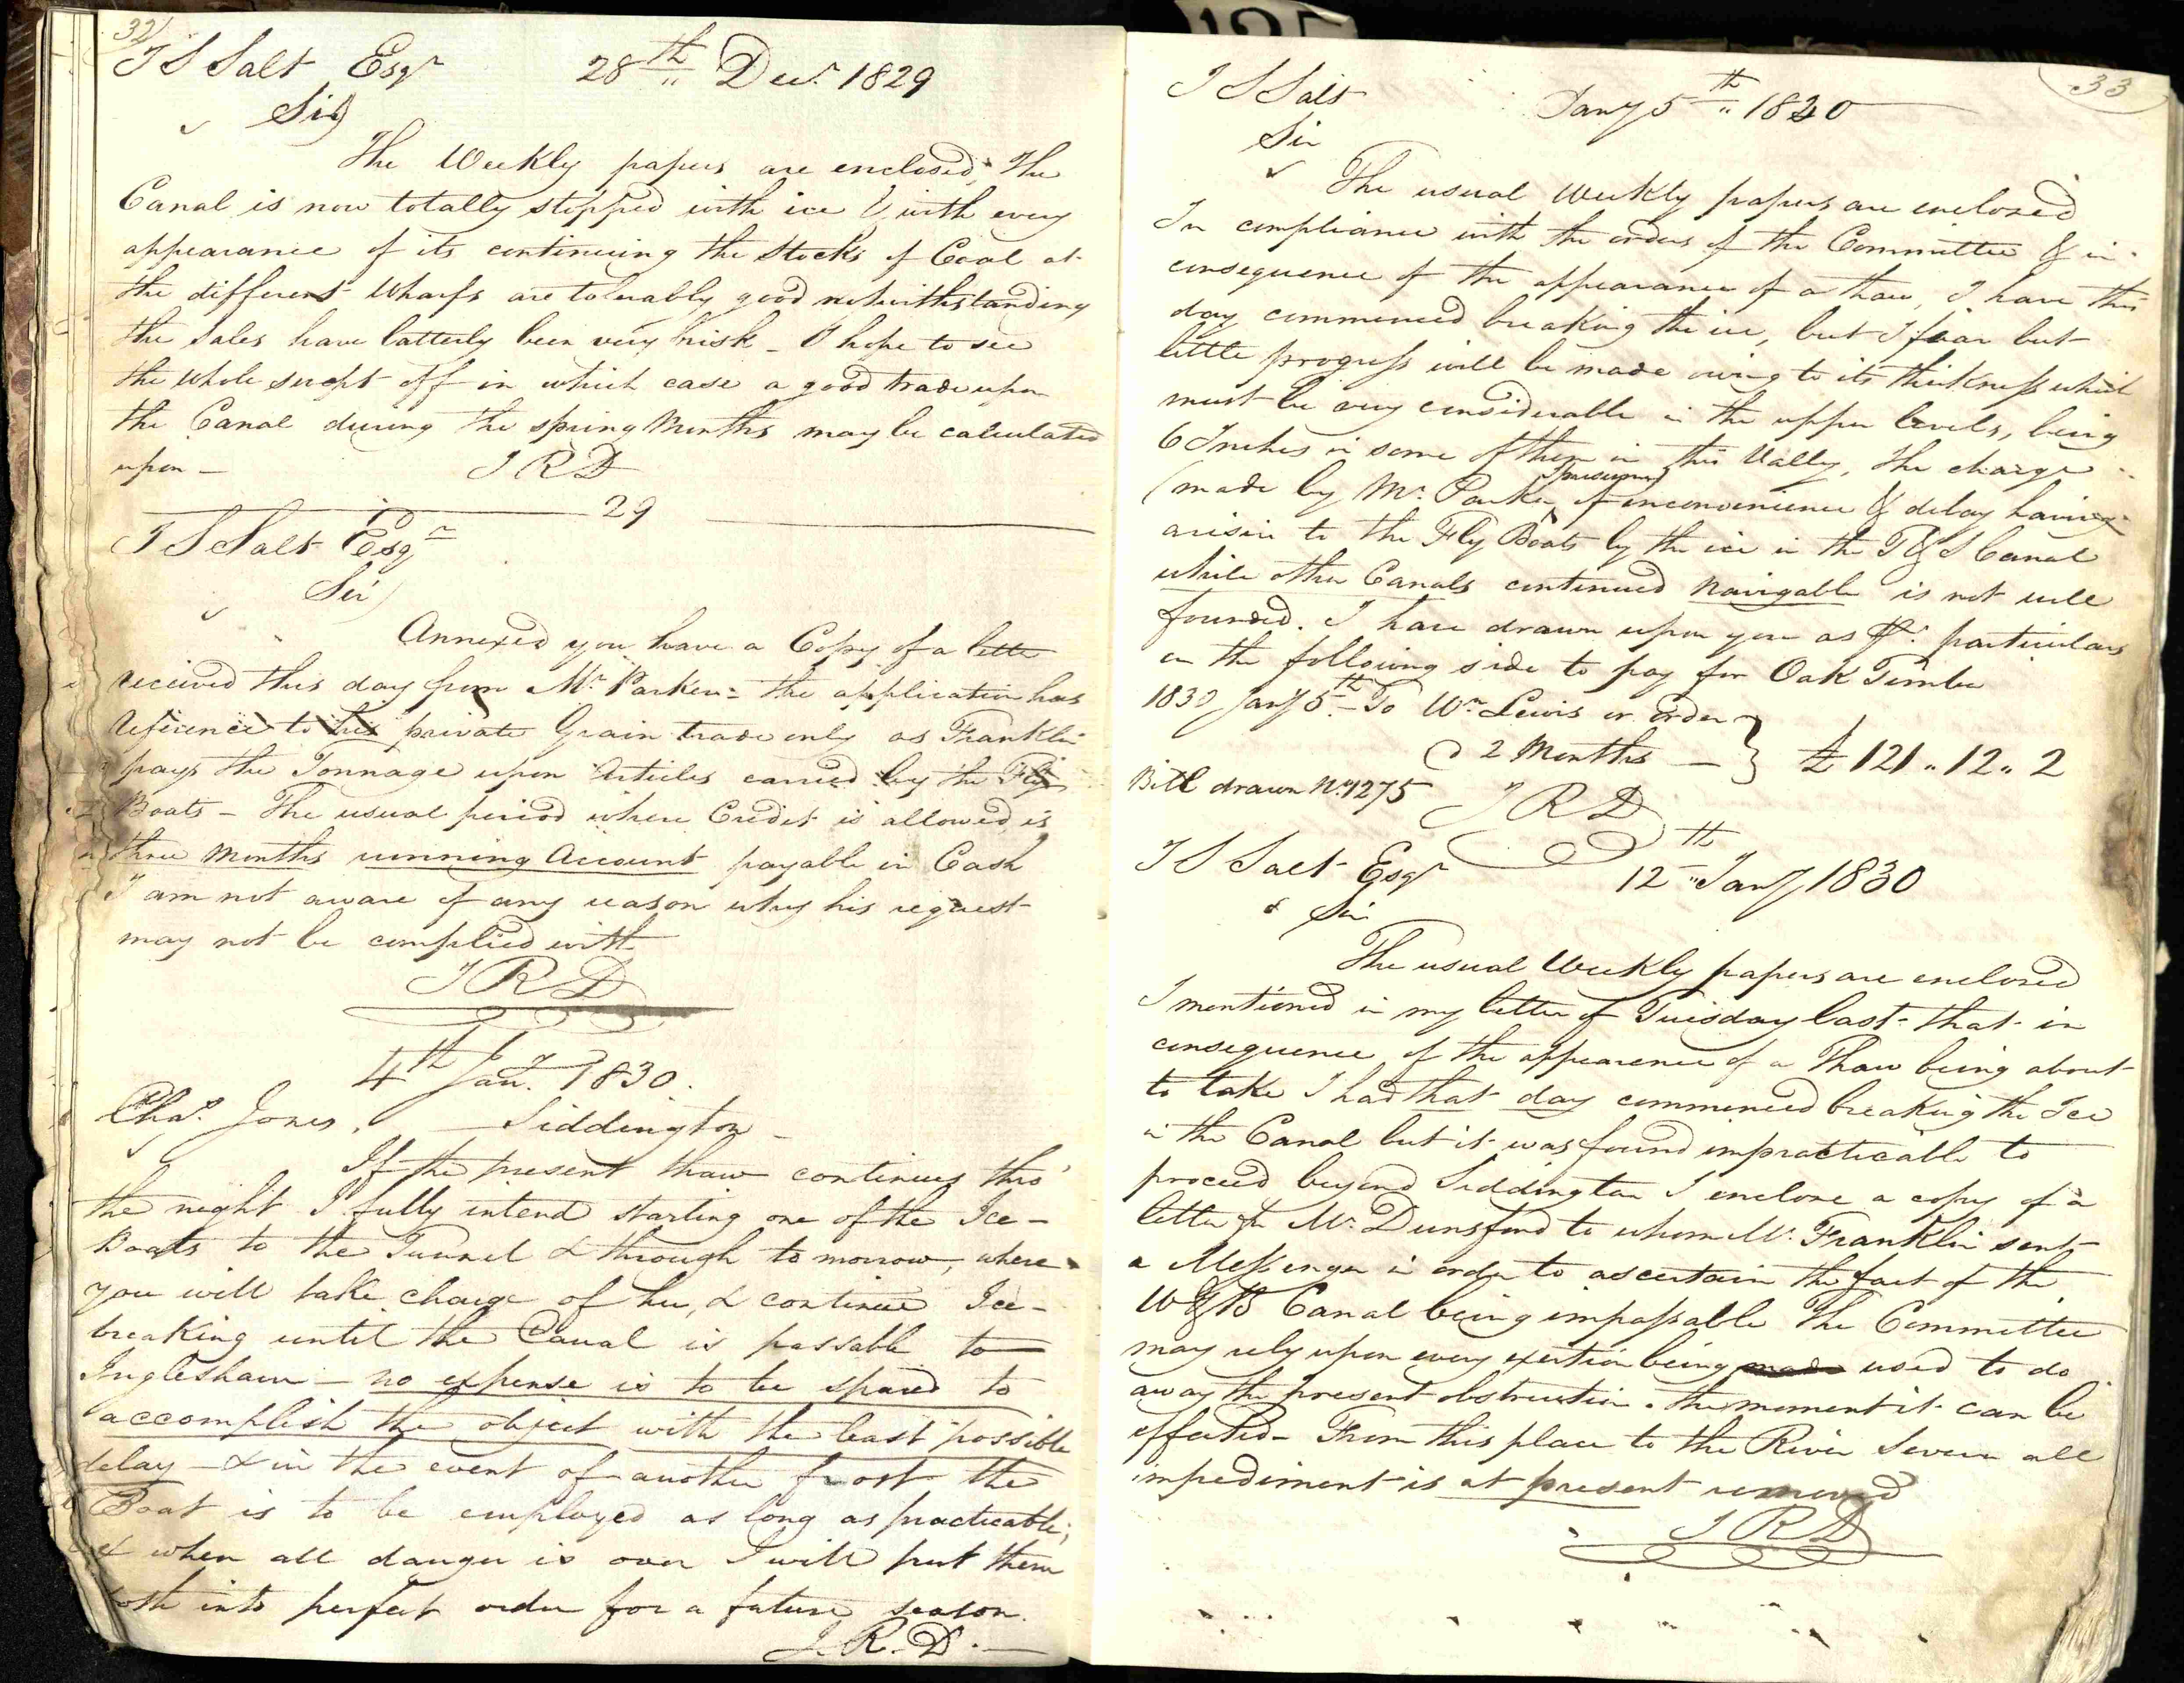 32)
J S Salt Esqr 28th Decr. 1829
Sir)
The Weekly papers are enclosed, The
Canal is now totally stopped with ice & with every
appearance of its continuing the Stocks of Coal at
the different Wharfs are tolerably good notwithstanding
the Sales have latterly been very brisk _ I hope to see
the whole swept off in which case a good trade upon
the Canal during the spring Months may be calculated
upon _ J R D
29
J S Salt Esqr
Sir)
Annexed you have a Copy of a letter
received this day from Mr. Parker = the application has
reference to his private Grain trade only as Franklin
pays the Tonnage upon Articles carried by the Fly
Boats – The usual period where Credit is allowed is
three Months running Account payable in Cash
I am not aware of any reason why his request
may not be complied with
J R D
4th Jany. 1830.
Chas. Jones, Siddington _
If the present thaw continues thro'
the night I fully intend starting one of the Ice –
Boats to the Tunnel & through to morrow, where
you will take charge of her, & continue Ice –
breaking until the Canal is passable to
Inglesham – no expense is to be spared to
accomplish the object with the least possible
delay – & in the event of another frost the
Boat is to be employed as long as practicable;
& when all danger is over I will put them
both into perfect order for a future season.
J. R. D. —
33
J S Salt Jany 5th 1830
Sir
The usual Weekly papers are enclosed
In compliance with the orders of the Committee & in
consequence of the appearance of a thaw, I have this
day commenced breaking the ice, but I fear but
little progress will be made owing to its thickness which
must be very considerable in the upper levels, being
6 Inches in some of them in this Valley, the charge
(made by Mr. Parker I presume) of inconvenience & delay having
arisin to the Fly Boats by the ice in the T & S Canal
while other Canals continued navigable is not well
founded. I have drawn upon you as pr. particulars
on the following side to pay for Oak Timber
1830 Jany 5th – To Wm Lewis or order }
@ 2 Months — } £ 121 .. 12 .. 2
Bill drawn No. 1275 J R D
J S Salt Esqr 12th Jany 1830
Sir
The usual Weekly papers are enclosed
I mentioned in my letter of Tuesday last that in
consequence of the appearence of a Thaw being about
to take I had that day commenced breaking the Ice
in the Canal but it was found impracticable to
proceed beyond Siddington I enclose a copy of a
letter fm Mr. Dunsford to whom Mr. Franklin sent
a Messenger in order to ascertain the fact of the
W & B Canal being impassable The Committee
may rely upon every exertion being made used to do
away the present obstruction the moment it can be
effected – From this place to the River Severn all
impediment is at present removed
J R D